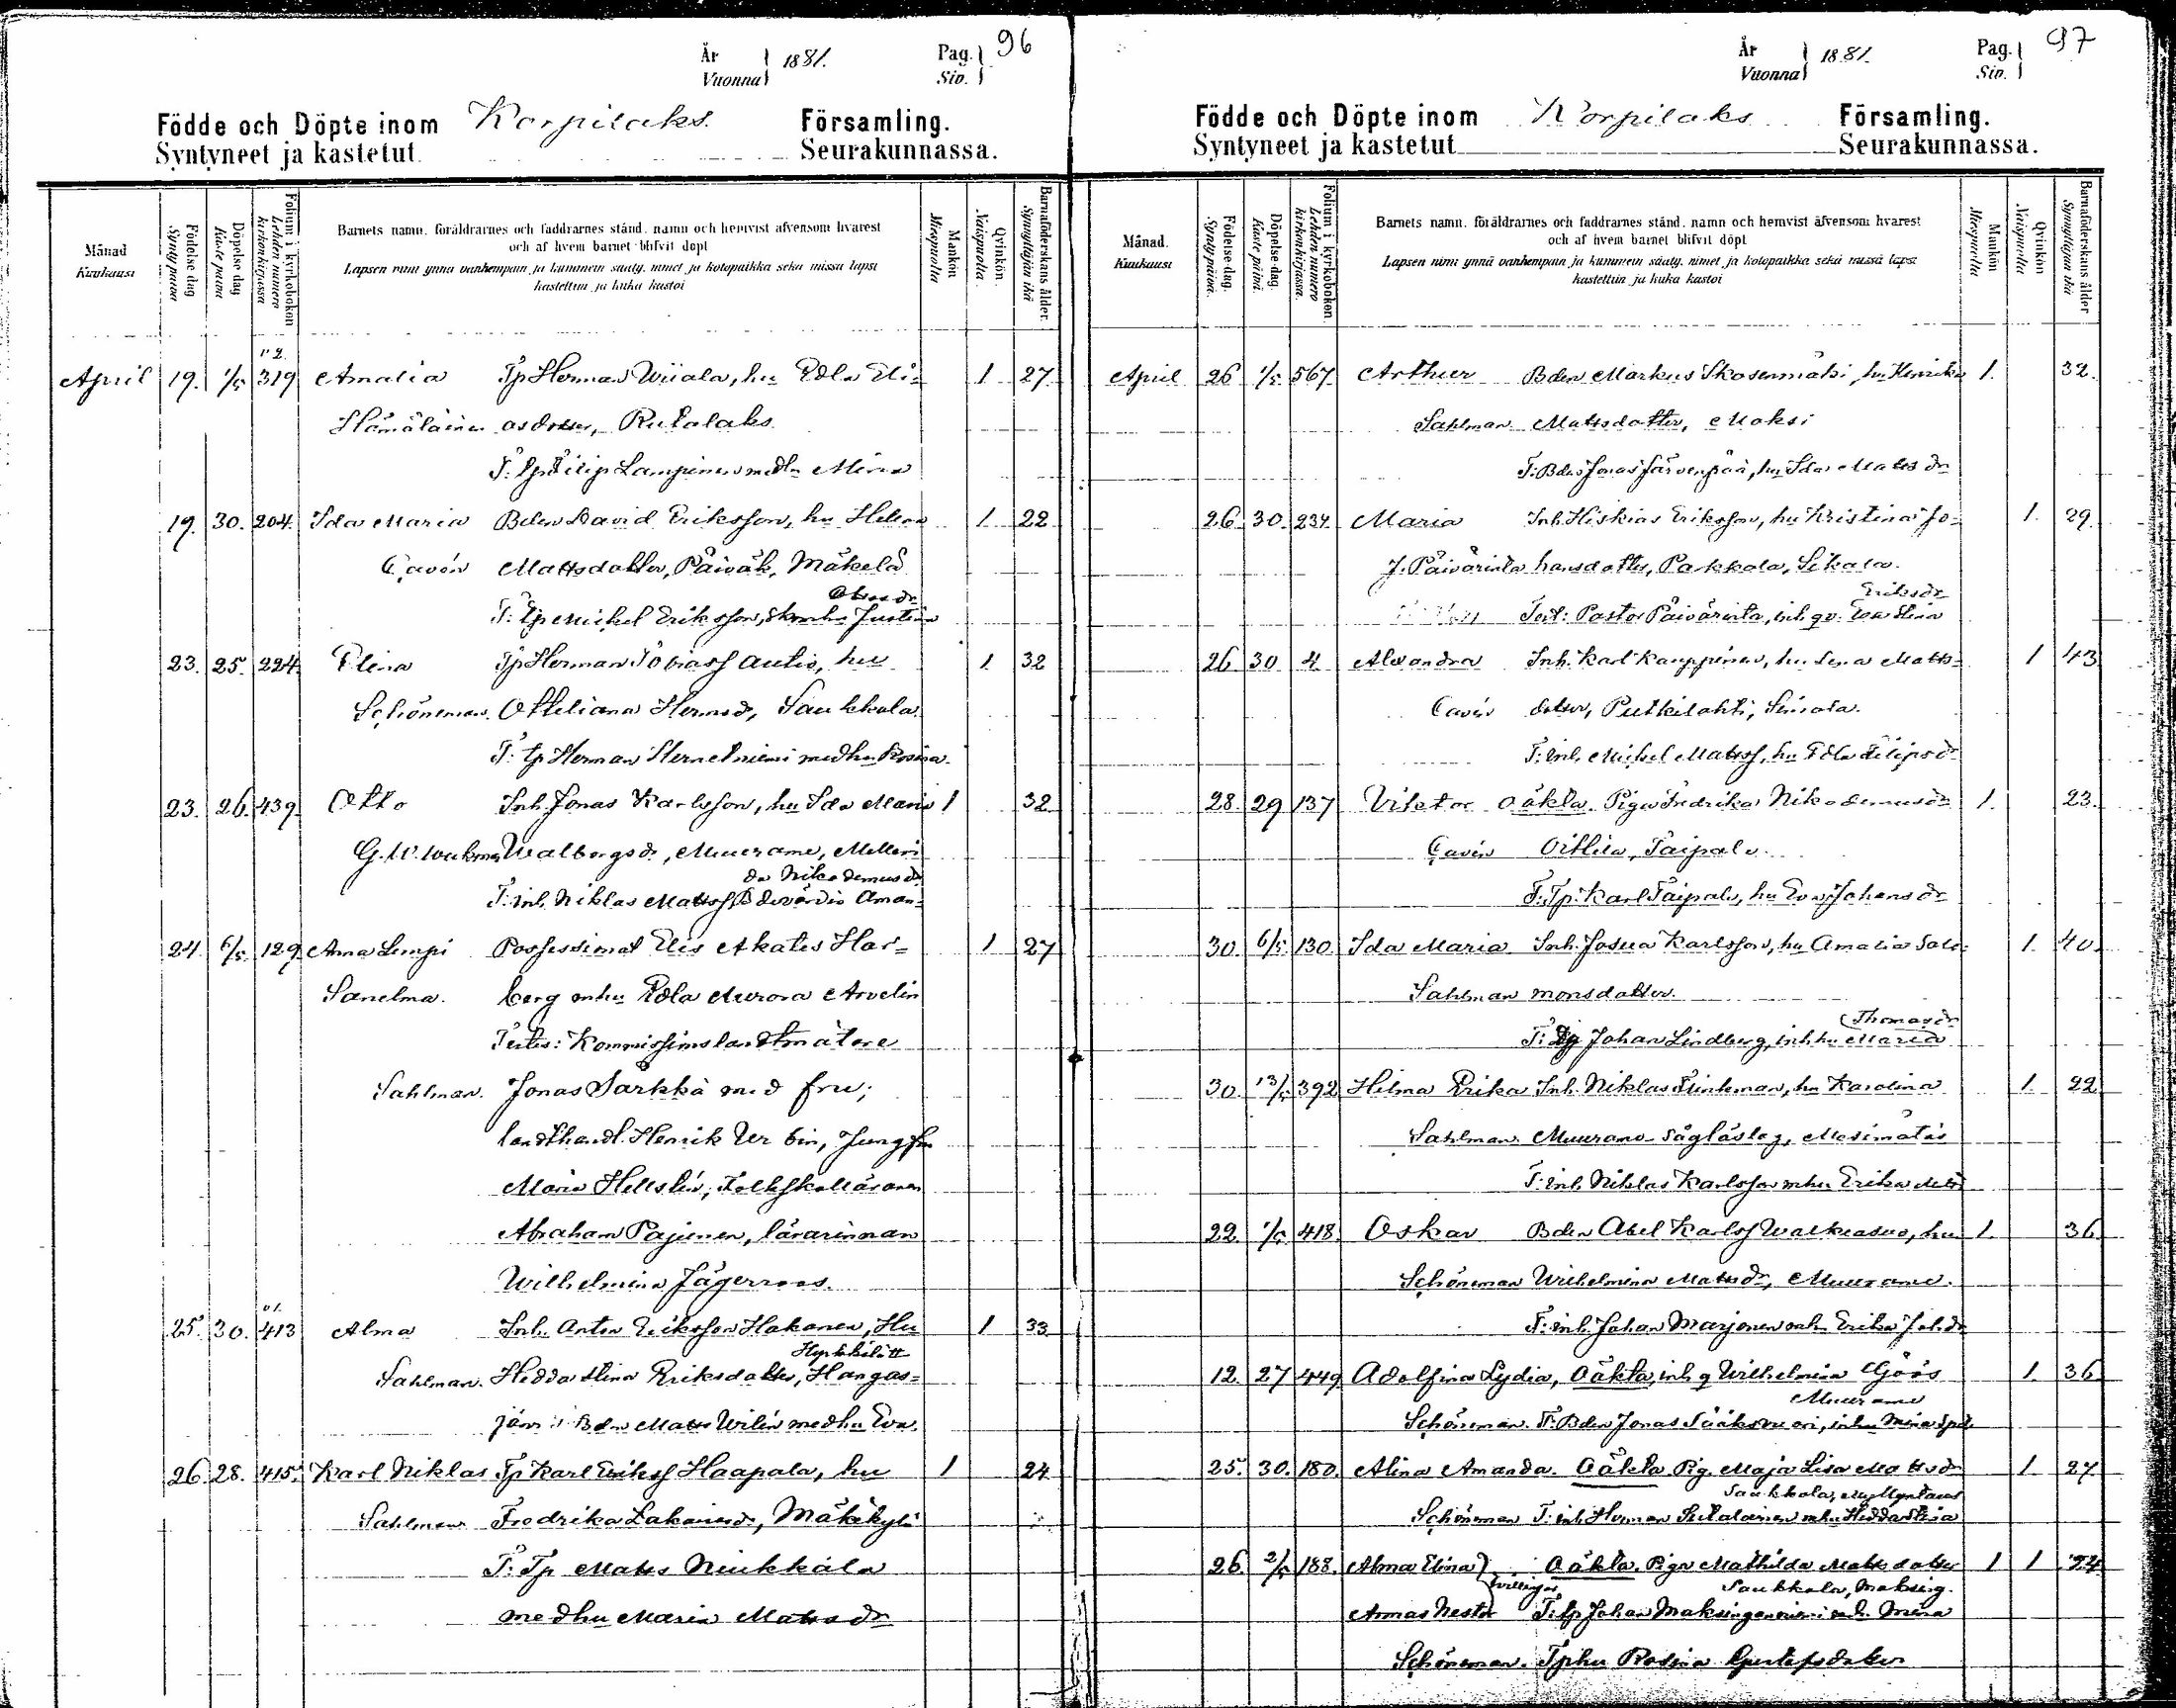 År
Vuonna
1881.
Pag.
Siv.
96
Födde och Döpte inom Korpilaks. Församling.
Syntyneet ja kastetut Seurakunnassa.
Månad
Kuukausi
Födelse dag
Synty päivä
Döpelse dag
Kaste päivä
Folium i kyrkoboken
Lehden numero kirkonkirjassa
Barnets namn, föräldrarnes och faddrarnes stånd, namn och hemvist äfvensom hvarest
och af hvem barnet blifvit döpt
Lapsen nimi ynnä vanhempain ja kummein sääty, nimet ja kotopaikka sekä missä lapsi
kastettiin ja kuka kastoi
Mankön
Miespuolia
Qvinkön
Naispuolia
Barnaföderskans ålder.
Synnyttäjän ikä
April 19. 1/5 319 Amalia Tp Herman Wiiala, hu Edla Eli= 1 27
Hämäläinen asdotter, Rutalaks.
T: Tp Filip Lampinen med hu Mina
19. 30. 204. Ida Maria Bden David Eriksson, hu Helena 1 22
Cavén Mattsdotter, Päiväk, Mäkelä
T: Tp Michel Eriksson, Justina
23. 25. 224. Elina Tp Herman Tobiass Autio, hu 1 32
Schöneman. Otteliana Hermsd, Saukkola.
T: Tp Herman Hernetniemi med hu Rosina.
23. 26. 439. Otto Inh. Jonas Karlsson, hu Ida Maria 1 32
G. W. Walbergsdr, Muurame, Melleri
Nikodemusdr
T: inh. Niklas Mattss, Aman=
24. 6/5. 129 Anna Lempi Possessionat Elis Akates Har= 1 27
Sanelma. berg o hu Edla Aurora Arvelin
Testes: Kommissionslandtmätare
Sahlman. Jonas Sarkkä med fru;
landthandl. Henrik Urbin, Jungfru
Maria Hellstén, Folkskolläraren
Abraham Pajunen, lärarinnan
Wilhelmina Jägerroos.
25. 30. 413 Alma Inh. Anton Eriksson Hakanen, Hu 1 33
Sahlman. Hedda Stina Eriksdotter, Hangas=
järvi T: Bdn Matts Wilén med hu Eva.
26. 28. 415. Karl Niklas Tp Karl Erikss Haapala, hu 1 24
Sahlman Fredrika Zakariasdr, Mäkikylä
T: Tp Matts Niukkala
med hu Maria Mattsdr
År
Vuonna
1881.
Pag.
Siv.
97
Födde och Döpte inom Korpilaks Församling.
Syntyneet ja kastetut Seurakunnassa.
Månad.
Kuukausi
Födelse-dag.
Synty päivä.
Döpelse-dag.
Kaste päivä.
Folium i kyrkoboken.
Lehden numero kirkonkirjassa.
Barnets namn, föräldrarnes och faddrarnes stånd, namn och hemvist äfvensom hvarest
och af hvem barnet blifvit döpt
Lapsen nimi ynnä vanhempain ja kummein sääty, nimet ja kotopaikka sekä missä lapsi
kastettiin ja kuka kastoi
Mankön
Miespuolia
Qvinkön
Naispuolia
Barnaföderskans ålder
Synnyttäjän ikä
April 26 1/5 567 Arthur Bden Markus Skosenmäki, hu Henrika 1. 32.
Sahlman Mattsdotter, Moksi
T: Bden Jonas Järvenpää, hu Ida Mattsdr
26 30. 234. Maria Inh. Hiskias Eriksson, hu Kristina Jo= 1. 29.
J. Päivärinta hansdotter, Pakkala, Sikala.
Eriksdr
Test: Pastor Päivärinta, inh. qv. Eva Stina
26 30 4 Alexandra Inh. Karl Kauppinen, hu Lena Matts= 1 43
Cavén dotter, Putkilahti, Sinisala.
T: inh. Michel Mattss, hu Edla Filipsdr
28. 29 137 Viktor Oäkta. Pigan Fredrika Nikodemusdr 1. 23.
Cavén Oittila, Taipale.
T: Tp. Karl Taipale, hu Eva Johansdr
30. 6/5 130. Ida Maria Inh. Josua Karlsson, hu Amalia Salo= 1. 40.
Sahlman monsdotter.
Thomasdr
T: Johan Lindberg, inh. hu Maria
30. 13/5 392 Hilma Erika Inh. Niklas Funkman, hu Karolina 1. 22
Sahlman. Muurame Såglåsteg, Mesimäki
T: inh. Niklas Karlsson o hu Erika
22. 1/5 418. Oskar Bden Abel Karlss Walkeasuo, hu 1. 36.
Schöneman Wilhelmina Mattsdr, Muurame.
T: inh. Johan Marjonen o hu Erika Joh.dr
12. 27 449 Adolfina Lydia, Oäkta, inh. q Wilhelmina Göös 1. 36
Muurame
Schöneman. T: Bden Jonas Sääksvuori, inh hu Mina
25. 30. 180. Alina Amanda. Oäkta Pig. Maja Lisa Mattsdr 1. 27
Saukkola,
Schöneman T: inh. Herman Sutalainen o hu Hedda Stina
26. 2/5 188. Alma Elina Oäkta. Pigan Mathilda Mattsdotter 1 1 24
Tvillingar Saukkola, Maksing.
Armas Nestor T: Tp Johan Maksinganniemi o h. Mina
Schöneman. Tp hu Rosina Gustafsdotter